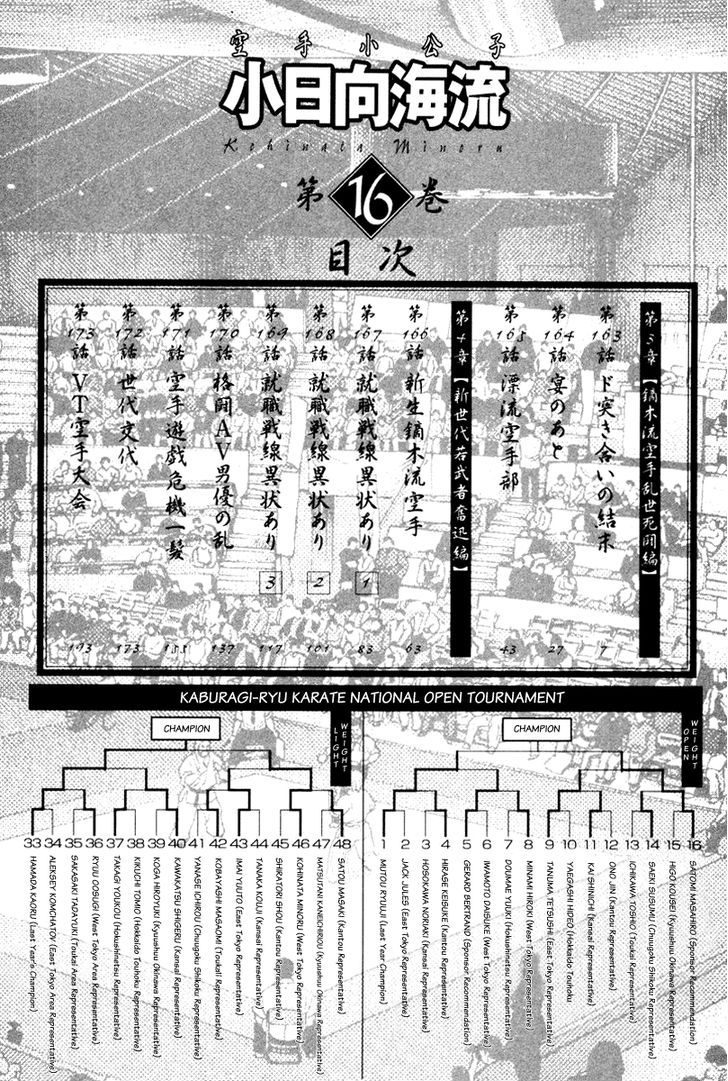 空手小公子
小日向海流
Kohinata Minoru
第16巻
目次
第3章【鏑木流空手乱世死闘編】
第163話 ド突き合いの結末 7
第164話 宴のあと 27
第165話 漂流空手部 43
第4章【新世代若武者奮迅編】
第166話 新生鏑木流空手 63
第167話 就職戦線異状あり 1 83
第168話 就職戦線異状あり 2 101
第169話 就職戦線異状あり 3 117
第170話 格闘AV男優の乱 137
第171話 空手遊戯危機一髪 155
第172話 世代交代 173
第173話 VT空手大会 193
KABURAGI-RYU KARATE NATIONAL OPEN TOURNAMENT
CHAMPION
LIGHT WEIGHT
33 HAMADA KAORU (Last Year's Champion)
34 ALEKSEY KOMCHATOV (East Tokyo Area Representative)
35 SAKASAKI TADAYUKI (Toukai Area Representative)
36 RYUU OOSUGI (West Tokyo Area Representative)
37 TAKAO YOUKOU (Hokushinetsu Representative)
38 KIKUCHI TOMIO (Hokkaido Touhoku Representative)
39 KOGA HIROYUKI (Kyuushuu Okinawa Representative)
40 KAWAKATSU SHIGERU (Kansai Representative)
41 YANASE ICHIROU (Chuugoku Shikoku Representative)
42 KOBAYASHI MASAOMI (Toukai Representative)
43 IMAI YUUTO (East Tokyo Representative)
44 TANAKA KOUJI (Kansai Representative)
45 SHIRATORI SHOU (Kantou Representative)
46 KOHINATA MINORU (West Tokyo Representative)
47 MATSUTANI KANEICHIROU (Kyuushuu Okinawa Representative)
48 SATOU MASAKI (Kantou Representative)
CHAMPION
OPEN WEIGHT
1 MUTOU RYUUJI (Last Year Champion)
2 JACK JULES (East Tokyo Representative)
3 HOSOKAWA NORIAKI (Kansai Representative)
4 HIRASE KEISUKE (Kantou Representative)
5 GERARD BERTRAND (Sponsor Recommendation)
6 IWAMOTO DAISUKE (West Tokyo Representative)
7 DOUMAE YUUKI (Hokushinetsu Representative)
8 MINAMI HIROKI (West Tokyo Representative)
9 TANUMA TETSUSHI (East Tokyo Representative)
10 YAEGASHI HIDEO (Hokkaido Touhoku
11 KAI SHINICHI (Kansai Representative)
12 ONO JIN (Kantou Representative)
13 ICHIKAWA TOSHIO (Toukai Representative)
14 SAEKI SUSUMU (Chuugoku Shikoku Representative)
15 HIGO KOUSEI (Kyuushuu Okinawa Representative)
16 SATOMI MASAHIRO (Sponsor Recommendation)